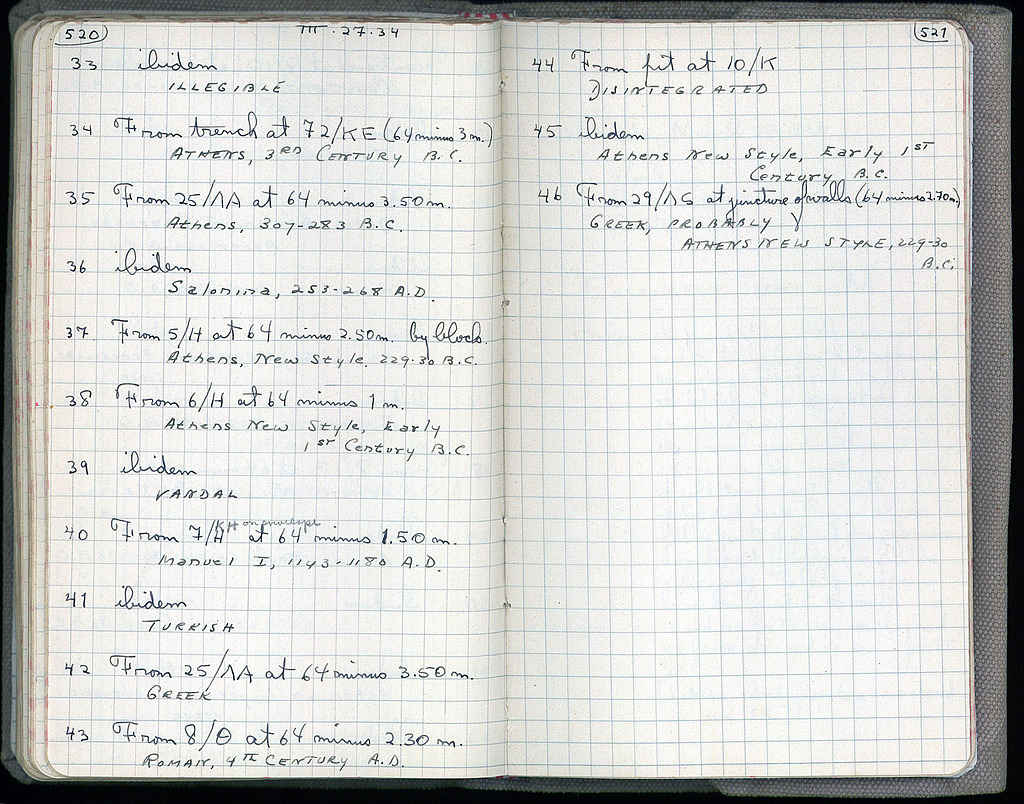 520
III.27.34
33 ibidem
ILLEGIBLE
34 From trench at 72/KE (64 minus 3 m.)
ATHENS, 3RD CENTURY B.C.
35 From 25/ΛA at 64 minus 3.50 m.
Athens, 307-283 B.C.
36 ibidem
Salonina, 253-268 A.D.
37 From 5/H at 64 minus 2.50 m. by block.
Athens, New Style, 229-30 B.C.
38 From 6/H at 64 minus 1 m.
Athens New Style, Early
1ST Century B.C.
39 ibidem
VANDAL
KH on envelope
40 From 7/H at 64 minus 1.50 m.
Manuel I, 1143-1180 A.D.
41 ibidem
TURKISH
42 From 25/ΛA at 64 minus 3.50 m.
GREEK
43 From 8/Θ at 64 minus 2.30 m.
ROMAN, 4TH CENTURY A.D.
521
44 From pit at 10/K
DISINTEGRATED
45 ibidem
Athens New Style, Early 1ST
Century B.C.
46 From 29/ΛS at juncture of walls (64 minus 2.70 m.)
GREEK, PROBABLY
ATHENS NEW STYLE, 229-30
B.C.